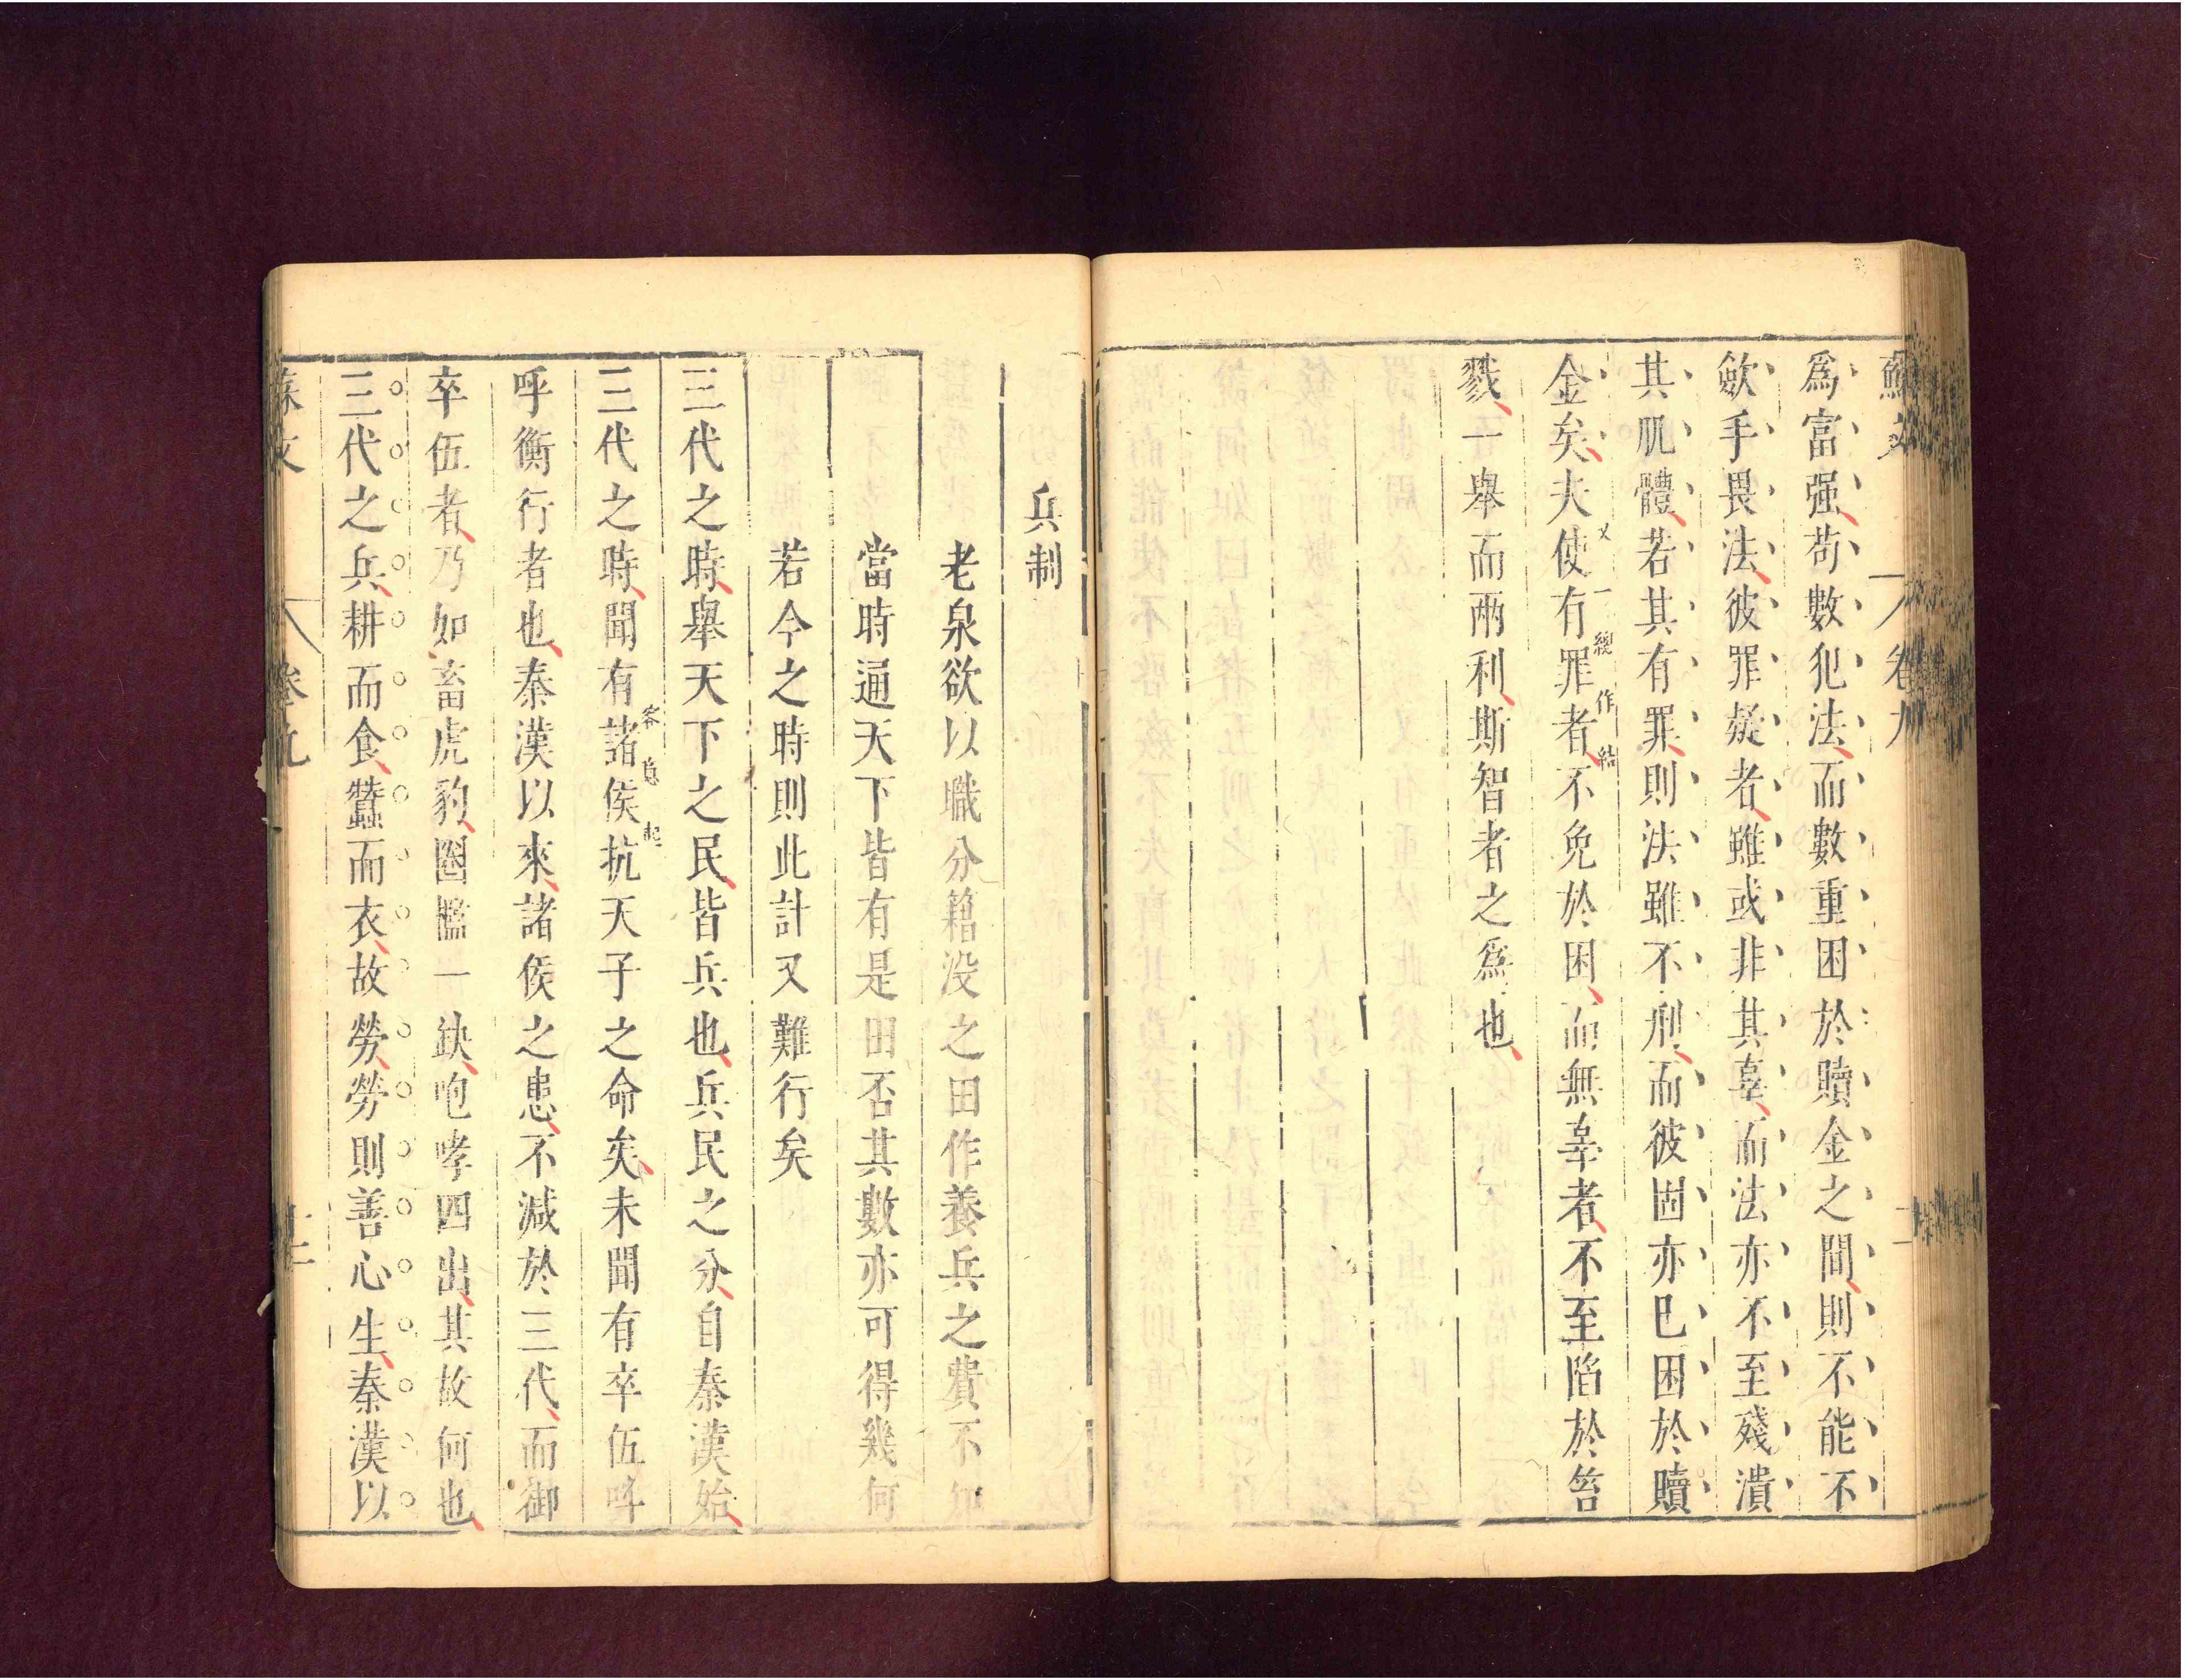 蘇文 卷九
爲富强苟數犯法而數重困於贖金之間則不能不
歛手畏法彼罪疑者雖或非其辜而法亦不至殘潰
其肌體若其有罪則法雖不刑而彼固亦已困於贖
金矣夫使有罪者不免於困而無辜者不至陷於笞
又一總作結
戮一舉而兩利斯智者之爲也
兵制
老泉欲以職分籍没之田作養兵之費不知
當時通天下皆有是田否其數亦可得幾何
若今之時則此計又難行矣
三代之時舉天下之民皆兵也兵民之分自秦漢始
三代之時聞有諸侯抗天子之命矣未聞有卒伍呼
客意起
呼衡行者也秦漢以來諸侯之患不減於三代而御
卒伍者乃如畜虎豹圈檻一缺咆哮四出其故何也
三代之兵耕而食蠶而衣故勞勞則善心生秦漢以
蘇文 卷九